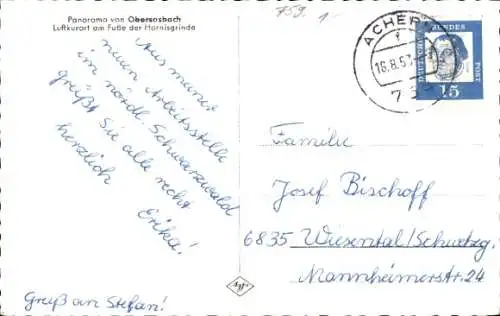 Panorama von Obersasbach
Luftkurort am Fuße der Hornisgrinde
759. 1-
ACHERN
16.8.6
DEUTSCHE BUNDES POST
15
Aus meiner
neuen Arbeitsstelle
im nördl. Schwarzwald
grüßt Sie alle recht
herzlich
Erika!
Gruß an Stefan!
Familie
Josef Bischoff
6835 Wiesental/Schwetzg.
Mannheimerstr. 24